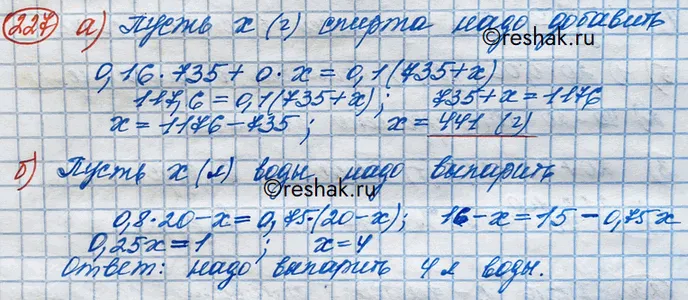 227 а) Пусть x (г) спирта надо добавить
0,16·735+0·x=0,1(735+x)
117,6=0,1(735+x); 735+x=1176
x=1176-735; x=441 (г)
©reshak.ru
б) Пусть x (л) воды надо выпарить
©reshak.ru
0,8·20-x=0,75·(20-x); 16-x=15-0,75x
0,25x=1; x=4
Ответ: надо выпарить 4 л воды.